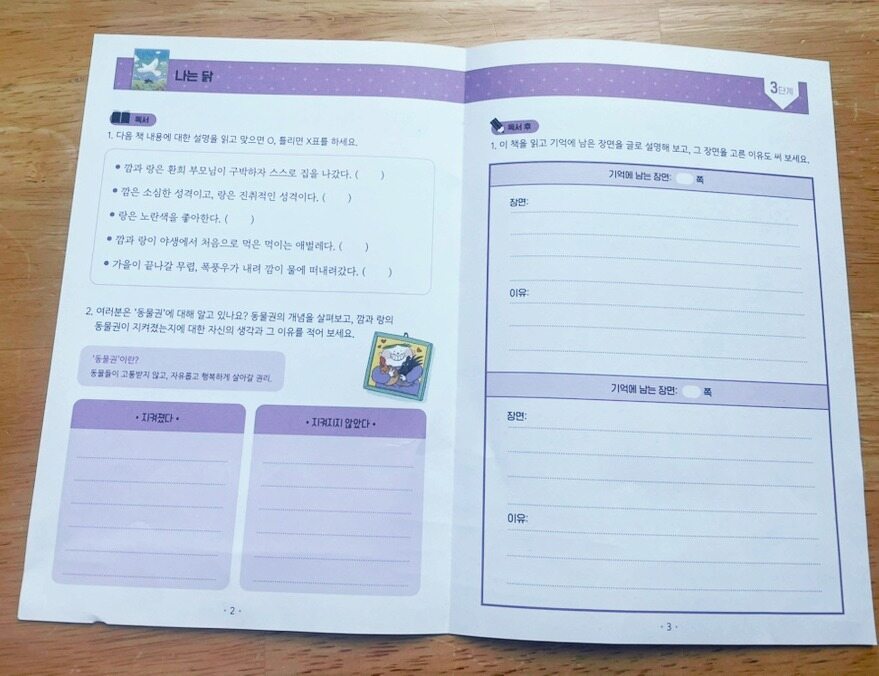 나는 닭
독서
1. 다음 책 내용에 대한 설명을 읽고 맞으면 O, 틀리면 X표를 하세요.
• 깜과 랑은 환희 부모님이 구박하자 스스로 집을 나갔다. (      )
• 깜은 소심한 성격이고, 랑은 진취적인 성격이다. (      )
• 랑은 노란색을 좋아한다. (      )
• 깜과 랑이 야생에서 처음으로 먹은 먹이는 애벌레다. (      )
• 가을이 끝나갈 무렵, 폭풍우가 내려 깜이 물에 떠내려갔다. (      )
2. 여러분은 '동물권'에 대해 알고 있나요? 동물권의 개념을 살펴보고, 깜과 랑의
동물권이 지켜졌는지에 대한 자신의 생각과 그 이유를 적어 보세요.
'동물권'이란?
동물들이 고통받지 않고, 자유롭고 행복하게 살아갈 권리.
• 지켜졌다 •
• 지켜지지 않았다 •
- 2 -
3단계
독서 후
1. 이 책을 읽고 기억에 남은 장면을 글로 설명해 보고, 그 장면을 고른 이유도 써 보세요.
기억에 남는 장면: 쪽
장면:
이유:
기억에 남는 장면: 쪽
장면:
이유:
- 3 -